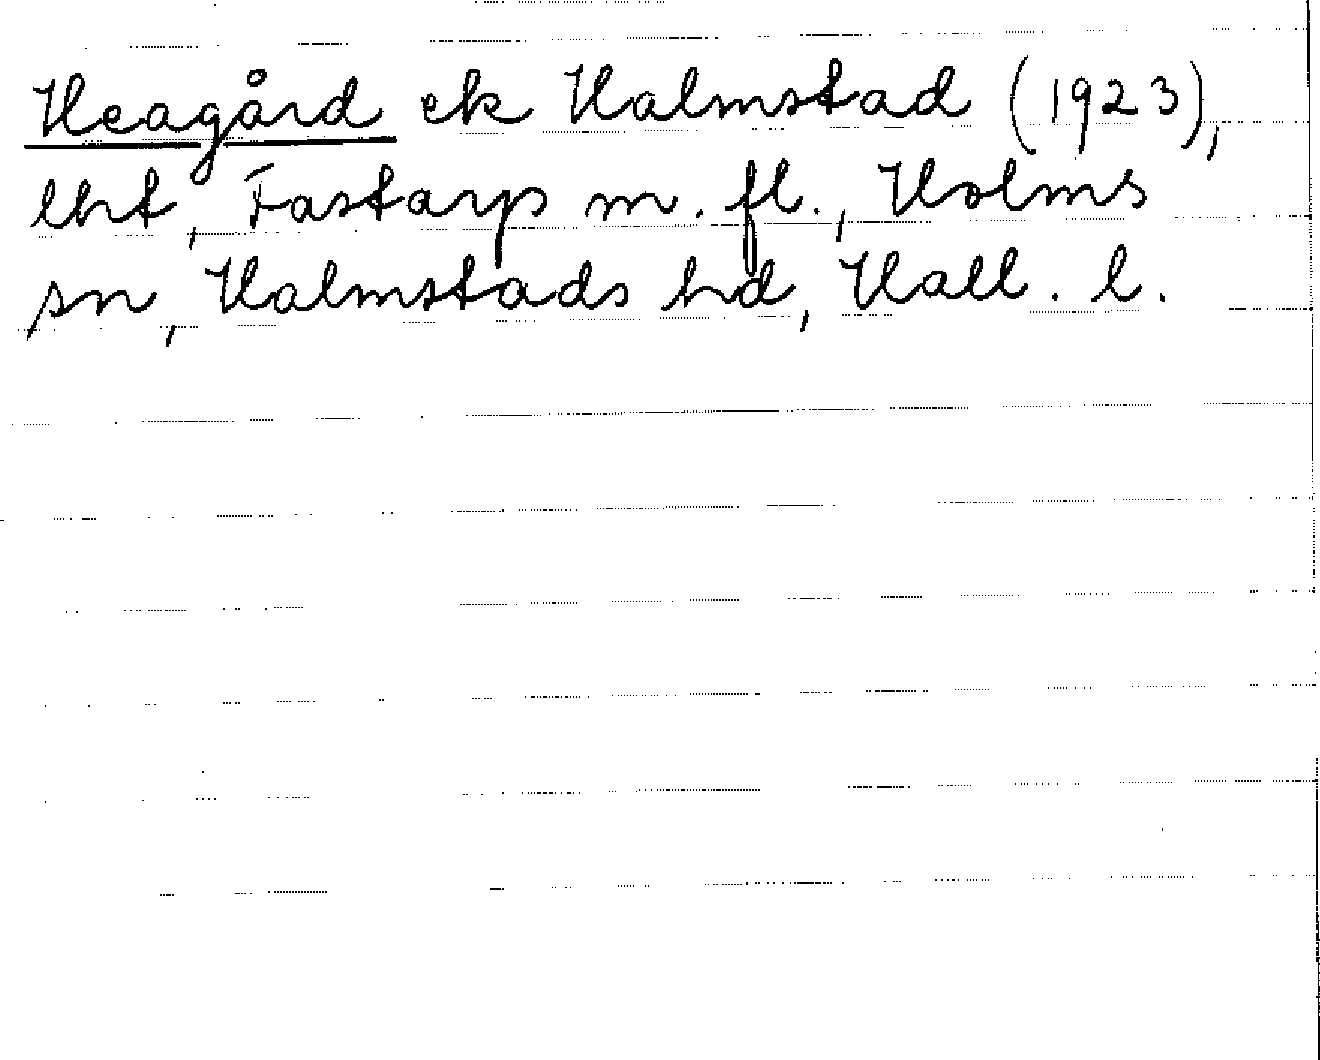 Heagård ek Halmstad (1923),
lht, Fastarp m. fl., Holms
sn, Halmstads hd, Hall. l.